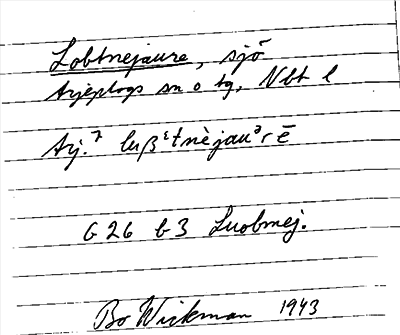 Lobtnejaure, sjö
Arjeplogs sn o tg, Nbt l
Arj. luβᵋtnèjauᵊrē
G 26 b 3 Luobnej.
Bo Wickman 1943